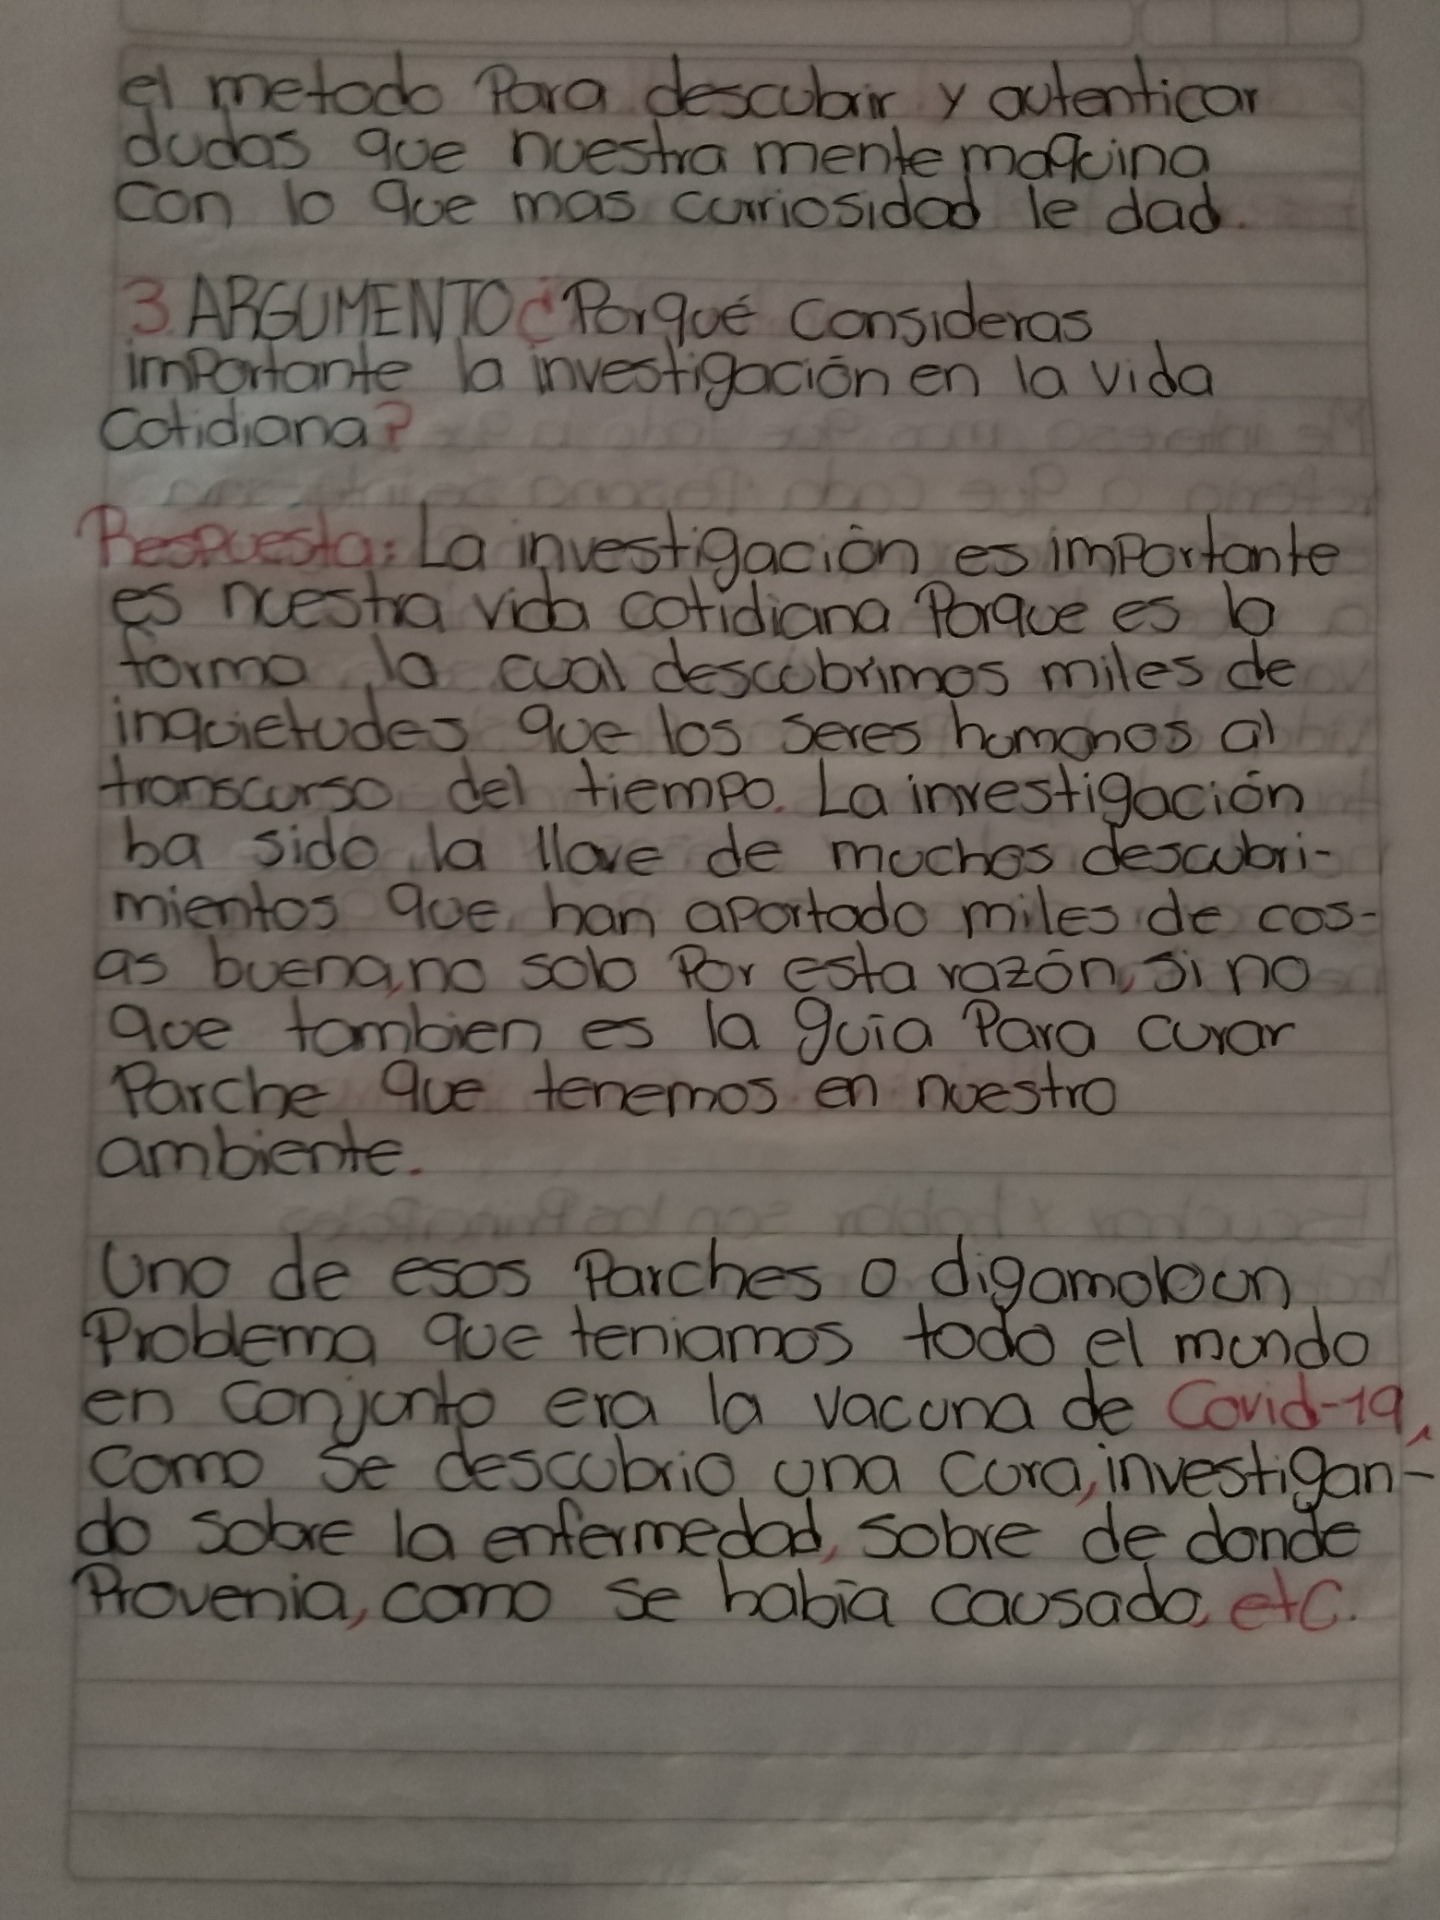 el metodo Para descubrir y autenticar
dudas que nuestra mente maquina
con lo que mas curriosidad le dad.
3. ARGUMENTO ¿Porqué consideras
importante la investigación en la vida
cotidiana?
Respuesta: La investigación es importante
es nuestra vida cotidiana Porque es la
forma la cual descubrimos miles de
inquietudes que los seres humanos al
transcurso del tiempo. La investigación
ha sido la llave de muchos descubri-
mientos que han aportado miles de cos-
as buena, no solo Por esta razón, si no
que tambien es la guia Para curar
Parche que tenemos en nuestro
ambiente.
Uno de esos Parches o digamolo un
Problema que teniamos todo el mundo
en conjunto era la vacuna de Covid-19,
como se descubrio una cura, investigan-
do sobre la enfermedad, sobre de donde
Provenia, como se había causado, etc.